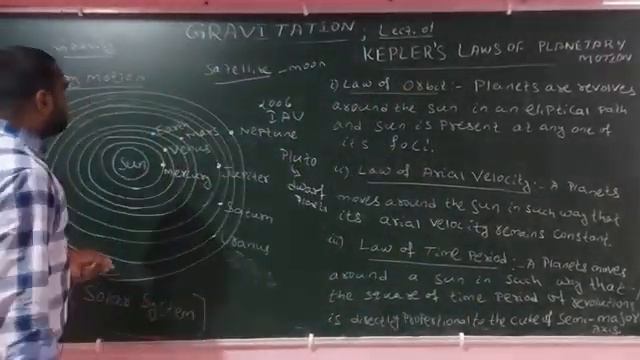 GRAVITATION, Lect. 01
KEPLER'S LAWS OF PLANETARY
MOTION
Satellite - moon
motion
2006
IAU
Earth
mars
Venus
Neptune
Sun
mercury
Jupiter
Pluto
dwarf
Planets
Saturn
Uranus
Solar System
i) Law of Orbit :- Planets are revolves
around the sun in an eliptical path
and sun is present at any one of
its foci.
ii) Law of Arial Velocity :- A Planets
moves around the sun in such way that
its arial velocity remains constant.
iii) Law of Time Period :- A Planets moves
around a sun in such way that
the square of time period of revolutions
is directly Proportional to the cube of semi-major
axis